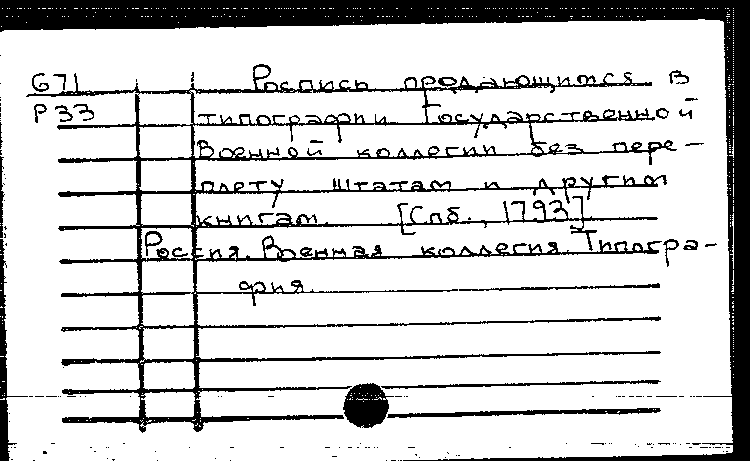 671
Р33
Роспись продающимся в
типографии Государственной
Военной коллегии без пере-
плету штатам и другим
книгам. [Спб., 1793]
Россия. Военная коллегия. Типогра-
фия.